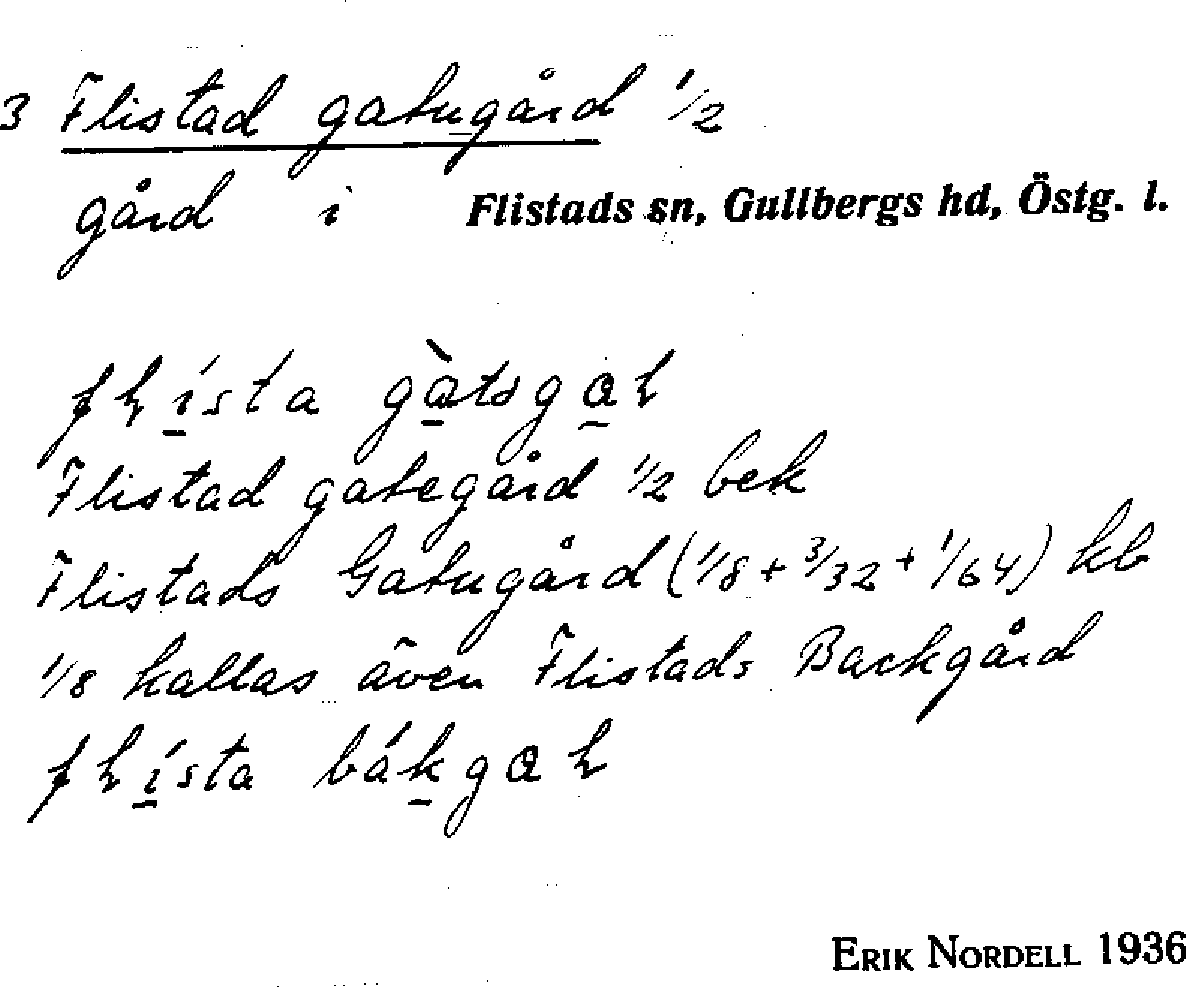 3 Flistad gatugård 1/2
gård i Flistads sn, Gullbergs hd, Östg. l.
Flistad gategård 1/2 bek
Flistads Gatugård (1/8 + 3/32 + 1/64) kb
1/8 kallas även Flistads Backgård
ERIK NORDELL 1936